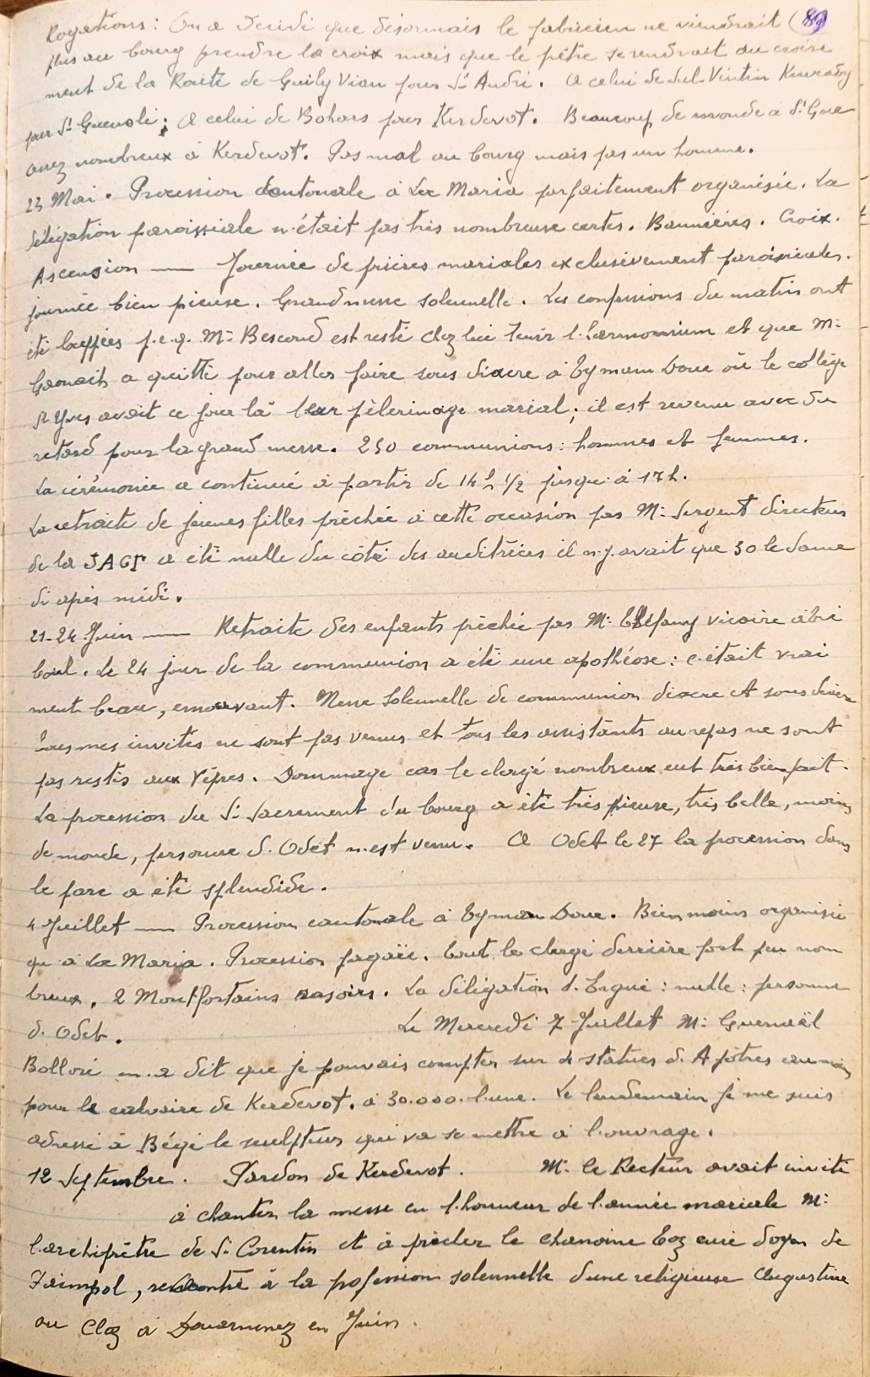 Rogations : On a décidé que désormais le fabricien ne viendrait (89)
plus au bourg prendre la croix mais que le prêtre se rendrait au croise
ment de la Route de Guily Vian pour St André. A celui de
pour St Guenolé ; A celui de Bohars pour Kerdevot. Beaucoup de monde à St Gué
assez nombreux à Kerdevot. Pas mal au bourg mais pas un homme.
23 Mai. Procession cantonale à Loc Maria parfaitement organisée. La
délégation paroissiale n'était pas très nombreuse certes. Bannières. Croix.
Ascension — Journée de prières mariales exclusivement paroissiales.
journée bien pieuse. Grand messe solennelle. Les confessions du matin ont
été p.c.q. Mr Bescond est resté chez lui tenir l'harmonium et que Mr
a quitté pour aller faire sous diacre à Ty mam Doue où le collège
St Yves avait ce jour là leur pèlerinage marial ; il est revenu avec du
retard pour la grand messe. 250 communions : hommes et femmes.
La cérémonie a continué à partir de 14 h 1/2 jusqu'à 17 h.
La retraite de jeunes filles prêchée à cette occasion par Mr Sergent directeur
de la a été nulle du côté des auditrices il n'y avait que 30 le same
di après midi.
21-24 Juin — Retraite des enfants prêchée par Mr vicaire à Bri
. Le 24 jour de la communion a été une apothéose : c'était vrai
ment beau, émouvant. Messe solennelle de communion diacre et sous diacre
Tous mes invités ne sont pas venus et tous les assistants au repas ne sont
pas restés aux Vêpres. Dommage car le clergé nombreux eut très bien fait.
La procession du St Sacrement du bourg a été très pieuse, très belle, moins
de monde, personne d'Odet n'est venu. A Odet le 27 la procession dans
le parc a été splendide.
4 Juillet — Procession cantonale à Ty mam Doue. Bien moins organisée
qu'à Loc Maria. Procession pagaïe. Tout le clergé derrière fort peu nom
breux. 2 Montfortains rasoirs. La délégation d'Ergué : nulle : personne
d'Odet. Le Mercredi 7 Juillet Mr Guenaël
Bolloré m'a dit que je pouvais compter sur 4 statues d'Apôtres au moins
pour le calvaire de Kerdevot. à 30.000 l'une. Le lendemain je me suis
adressé à Bégé le sculpteur qui va se mettre à l'ouvrage.
12 Septembre. Pardon de Kerdevot. Mr le Recteur avait invité
à chanter la messe en l'honneur de l'année mariale Mr
l'archiprêtre de St Corentin et à prêcher le chanoine curé doyen de
Paimpol, rencontré à la profession solennelle d'une religieuse Augustine
au à Douarnenez en Juin.